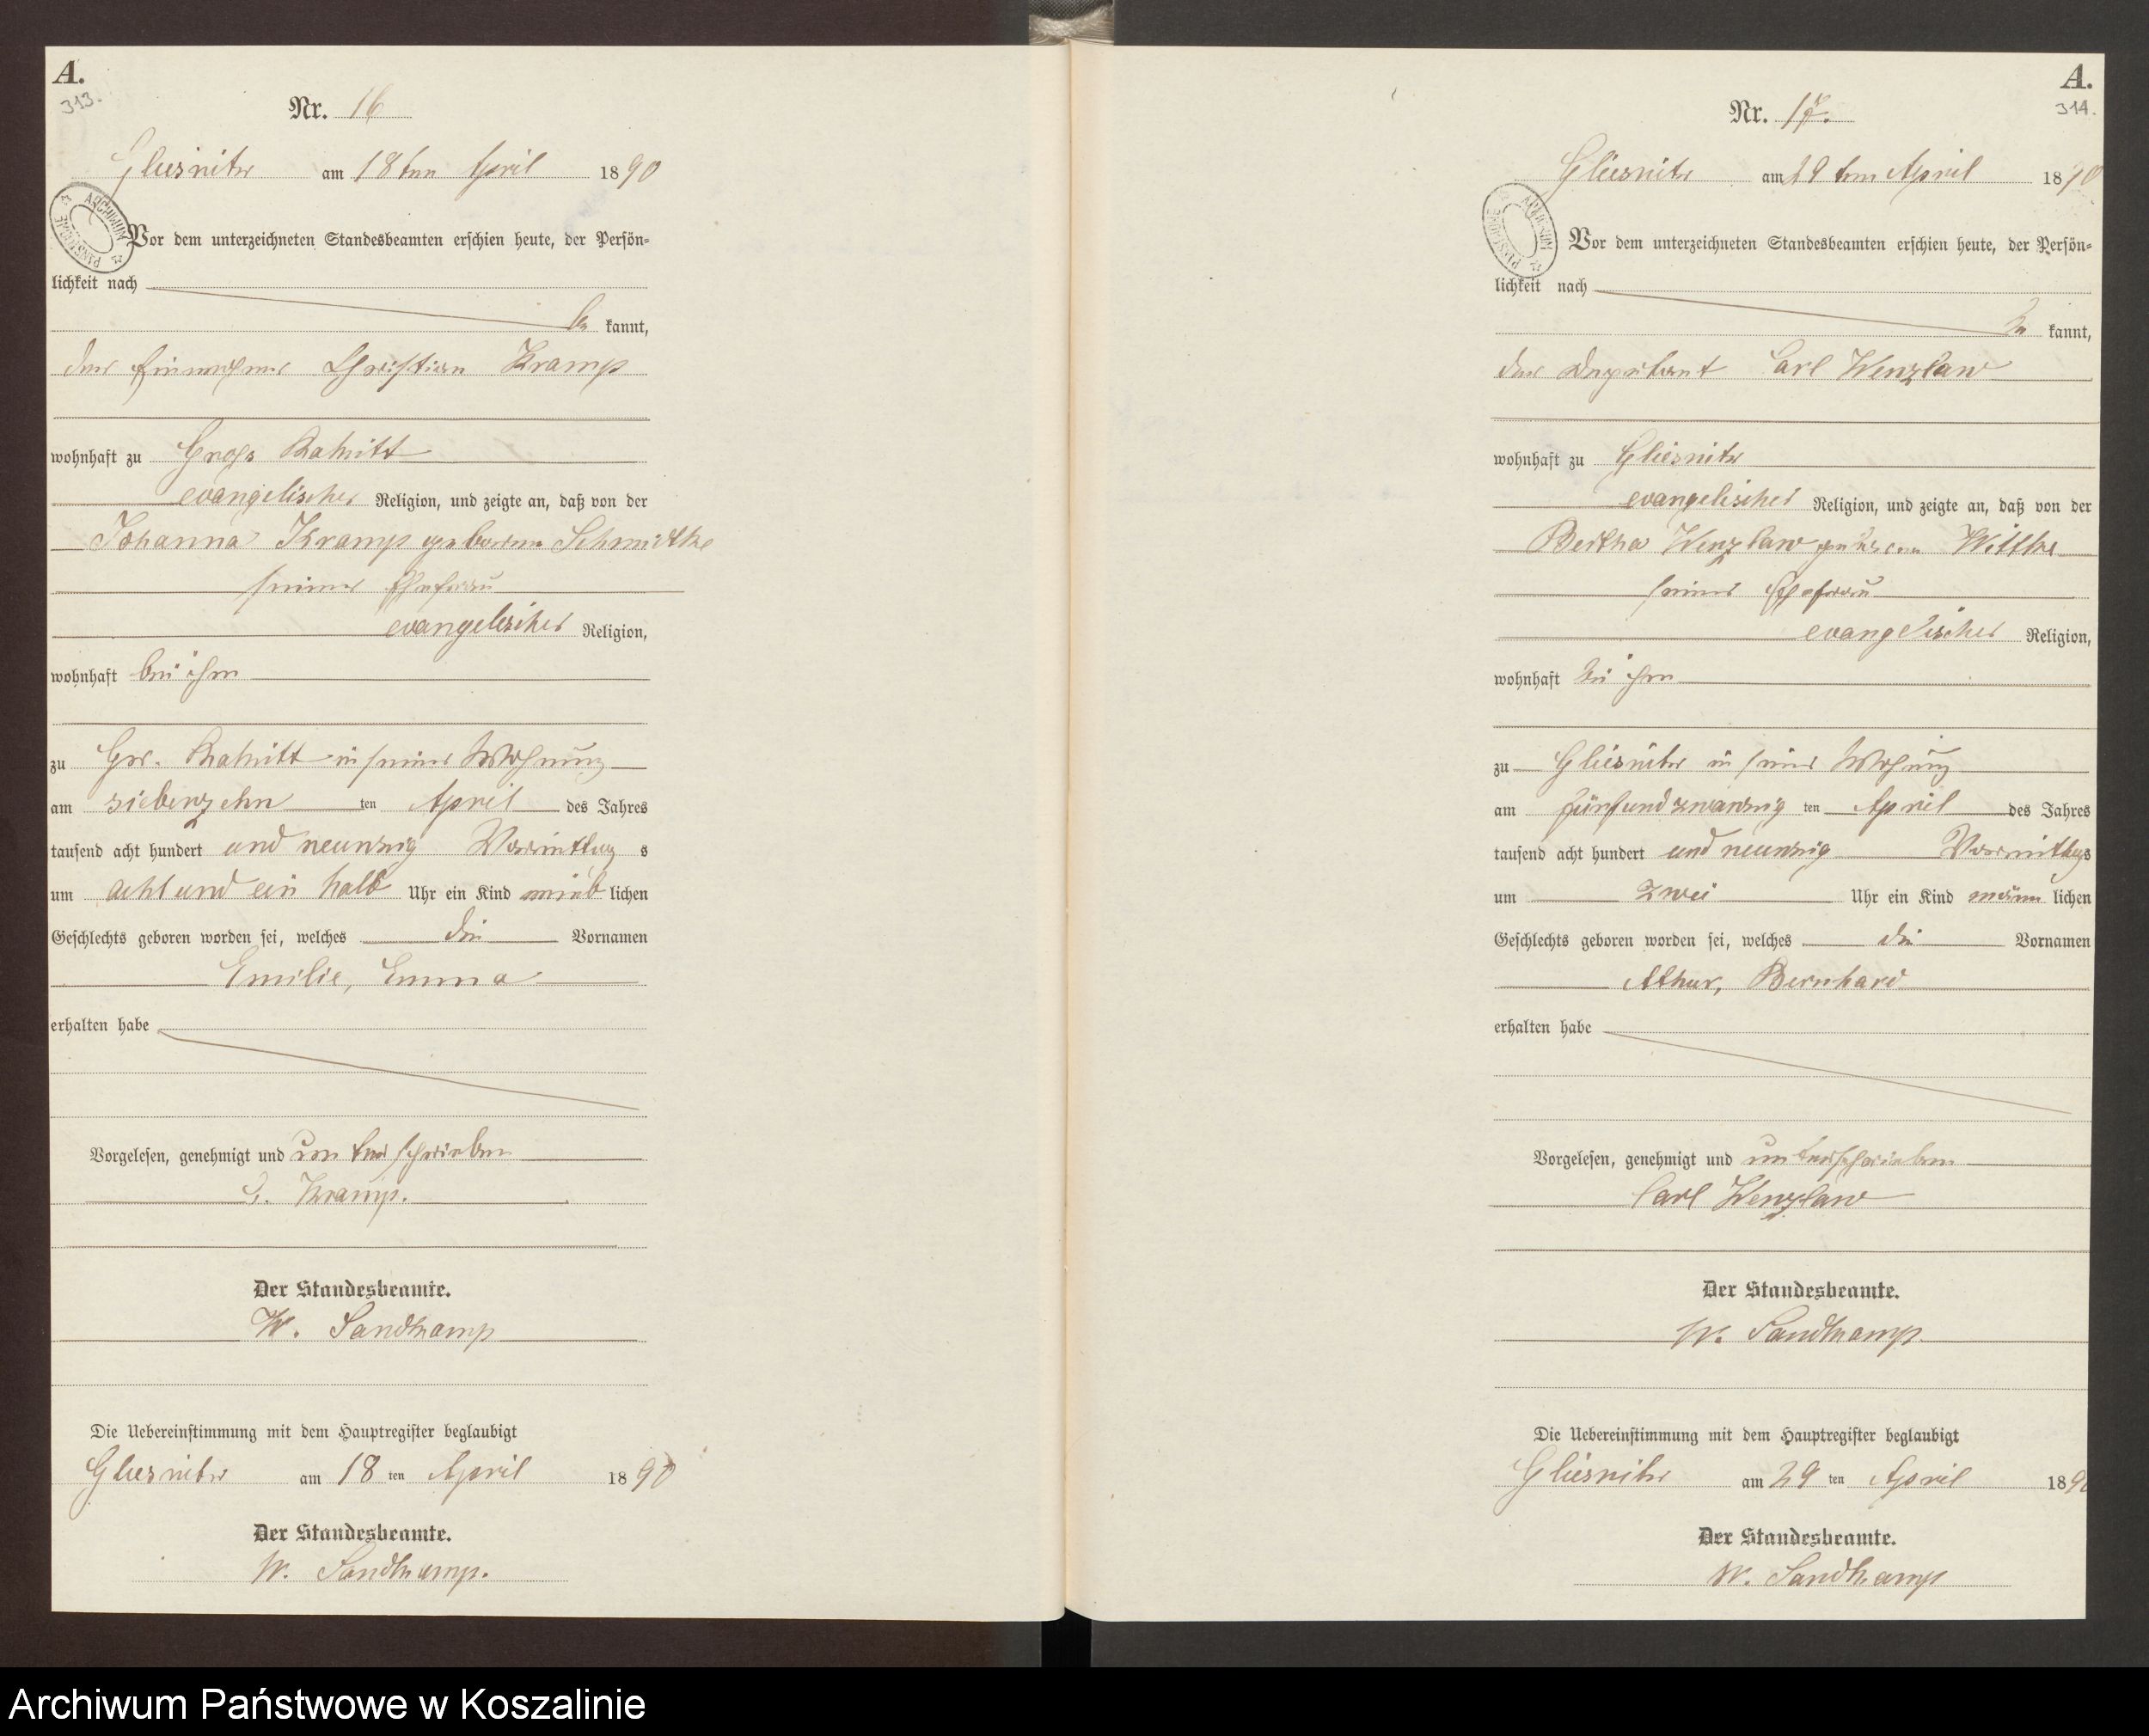 A.
313.
Nr. 16
Gliesnitz am 18ten April 1890
ARCHIWUM PAŃSTWOWE
Vor dem unterzeichneten Standesbeamten erschien heute, der Persön=
lichkeit nach
be kannt,
der Einwohner Christian Kramp
wohnhaft zu Gross
evangelischer Religion, und zeigte an, daß von der
Johanna Kramp geborene Schmidtke
seiner Ehefrau
evangelischer Religion,
wohnhaft bei ihm
zu Gr. in seiner Wohnung
am siebenzehn ten April des Jahres
tausend acht hundert und neunzig Vormittag s
um acht und ein halb Uhr ein Kind weib lichen
Geschlechts geboren worden sei, welches die Vornamen
Emilie, Emma
erhalten habe
Vorgelesen, genehmigt und unterschrieben
C. Kramp.
Der Standesbeamte.
W. Sandkamp
Die Uebereinstimmung mit dem Hauptregister beglaubigt
Gliesnitz am 18 ten April 1890
Der Standesbeamte.
W. Sandkamp.
A.
314.
Nr. 17.
Gliesnitz am 29ten April 1890
ARCHIWUM PAŃSTWOWE
Vor dem unterzeichneten Standesbeamten erschien heute, der Persön=
lichkeit nach
be kannt,
der Deputant Carl Wenzlaw
wohnhaft zu Gliesnitz
evangelischer Religion, und zeigte an, daß von der
Bertha Wenzlaw geborene Wittke
seiner Ehefrau
evangelischer Religion,
wohnhaft bei ihm
zu Gliesnitz in seiner Wohnung
am fünfundzwanzig ten April des Jahres
tausend acht hundert und neunzig Vormittags
um zwei Uhr ein Kind männ lichen
Geschlechts geboren worden sei, welches die Vornamen
Athur, Bernhard
erhalten habe
Vorgelesen, genehmigt und unterschrieben
Carl Wenzlaw
Der Standesbeamte.
W. Sandkamp.
Die Uebereinstimmung mit dem Hauptregister beglaubigt
Gliesnitz am 29 ten April 1890
Der Standesbeamte.
W. Sandkamp
Archiwum Państwowe w Koszalinie